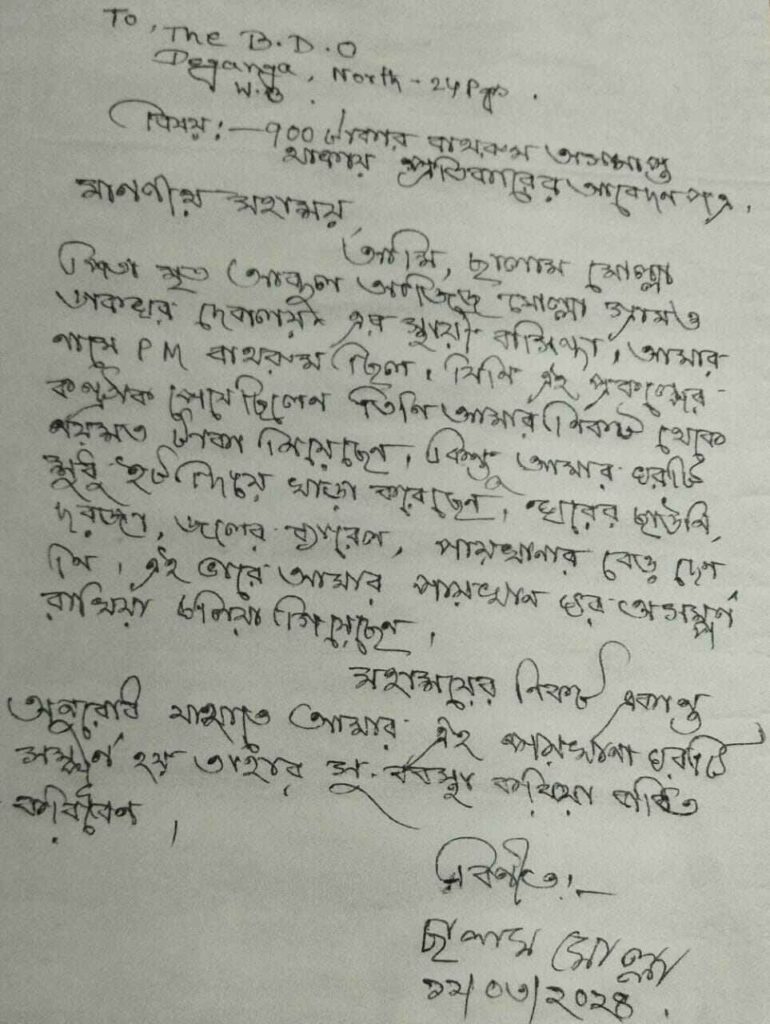 To,
The B.D.O
Deganga, North - 24 Pgs.
W.B.
বিষয়:— ৭০০ টাকার বাথরুম অসমাপ্ত
থাকায় প্রতিকারের আবেদন পত্র।
মাননীয় মহাশয়
আমি, ছালাম মোল্লা
পিতা মৃত আব্দুল আজিজ মোল্লা গ্রাম ও
ডাকঘর দেবালয় এর স্থায়ী বাসিন্দা, আমার
নামে PM বাথরুম ছিল। যিনি এই প্রকল্পের
কন্ট্রাক পেয়ে ছিলেন তিনি আমার নিকট থেকে
নয়শত টাকা নিয়েছেন। কিন্তু আমার ঘরটি
শুধু ইট দিয়ে খাড়া করেছেন, ঘরের ছাউনি,
দরজা, জলের ব্যারেল, পায়খানার বেড দেন
নি। এই ভাবে আমার পায়খান ঘর অসম্পূর্ণ
রাখিয়া চলিয়া গিয়েছেন।
মহাশয়ের নিকট একান্ত
অনুরোধ যাহাতে আমার এই পায়খানা ঘরটি
সম্পূর্ণ হয় তাহার সু-ব্যবস্থা করিয়া বাধিত
করিবেন।
বিনীত:—
ছালাম মোল্লা
১২/০৩/২০২৪.